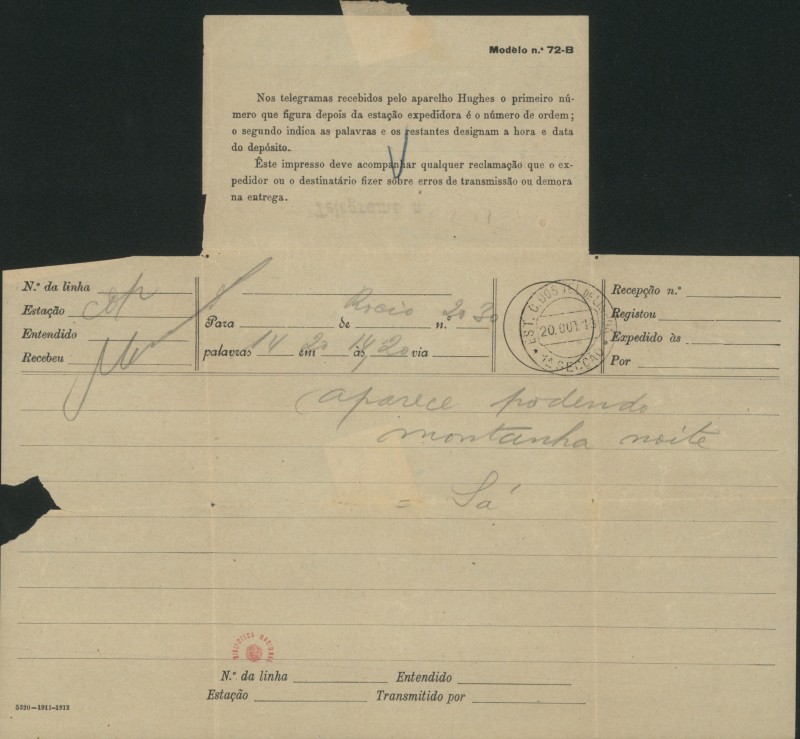 Modêlo n.º 72-B
Nos telegramas recebidos pelo aparelho Hughes o primeiro nú-
mero que figura depois da estação expedidora é o número de ordem;
o segundo indica as palavras e os restantes designam a hora e data
do depósito.
Êste impresso deve acompanhar qualquer reclamação que o ex-
pedidor ou o destinatário fizer sôbre erros de transmissão ou demora
na entrega.
N.º da linha
Estação
Entendido
Recebeu
Para de Rocio n.º 2030
palavras 14 em 20 às 14,20 via
EST. C. DOS TEL. DE
20.OUT.1
1ª SECCÃO
Recepção n.º
Registou
Expedido às
Por
aparece podendo
montanha noite
= Sá
BIBLIOTECA NACIONAL
N.º da linha Entendido
Estação Transmitido por
5320—1911-1912